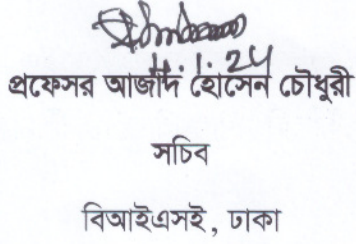 প্রফেসর আজাদ হোসেন চৌধুরী
সচিব
বিআইএসই, ঢাকা